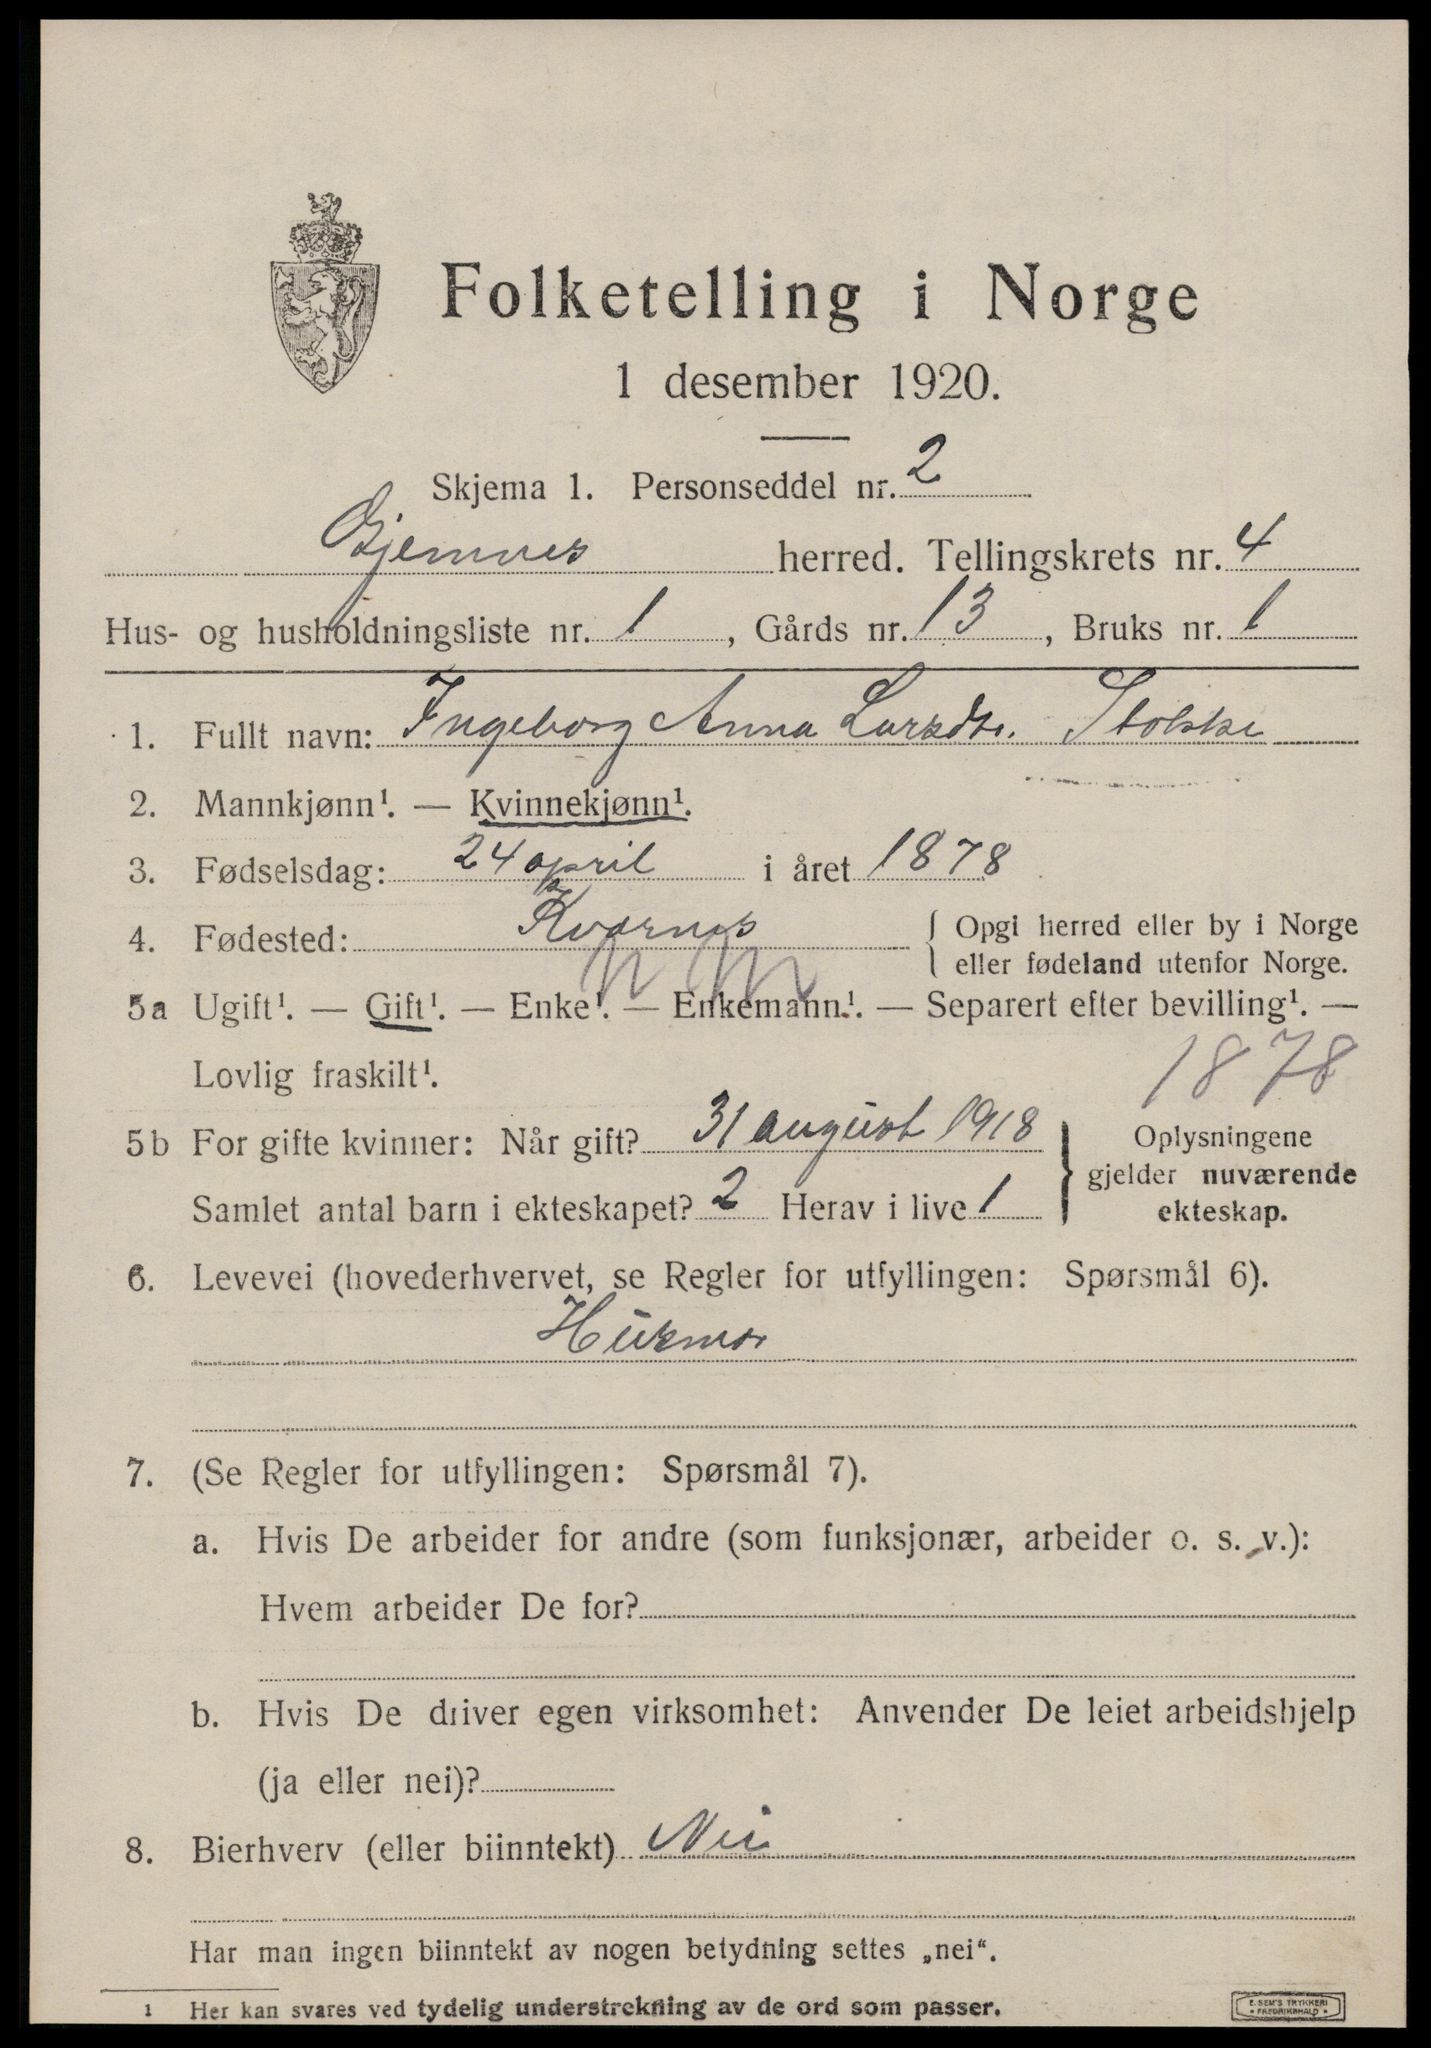 Folketelling i Norge
1 desember 1920.
Skjema 1. Personseddel nr. 2
Gjemnes herred. Tellingskrets nr. 4
Hus- og husholdningsliste nr. 1, Gårds nr. 13, Bruks nr. 1
1. Fullt navn: Ingeborg Anna Larsdtr. Stokke
2. Mannkjønn¹. — Kvinnekjønn¹.
3. Fødselsdag: 24 april i året 1878
4. Fødested: Kvernes { Opgi herred eller by i Norge
eller fødeland utenfor Norge.
N M
5a Ugift¹. — Gift¹. — Enke¹. — Enkemann¹. — Separert efter bevilling¹. —
Lovlig fraskilt¹. 1878
5b For gifte kvinner: Når gift? 31 august 1918 } Oplysningene
gjelder nuværende
Samlet antal barn i ekteskapet? 2 Herav i live 1 ekteskap.
6. Levevei (hovederhvervet, se Regler for utfyllingen: Spørsmål 6).
Husmor
7. (Se Regler for utfyllingen: Spørsmål 7).
a. Hvis De arbeider for andre (som funksjonær, arbeider o. s. v.):
Hvem arbeider De for?
b. Hvis De driver egen virksomhet: Anvender De leiet arbeidshjelp
(ja eller nei)?
8. Bierhverv (eller biinntekt) Nei
Har man ingen biinntekt av nogen betydning settes „nei“.
1 Her kan svares ved tydelig understrekning av de ord som passer.
E. SEM'S TRYKKERI
FREDRIKSHALD